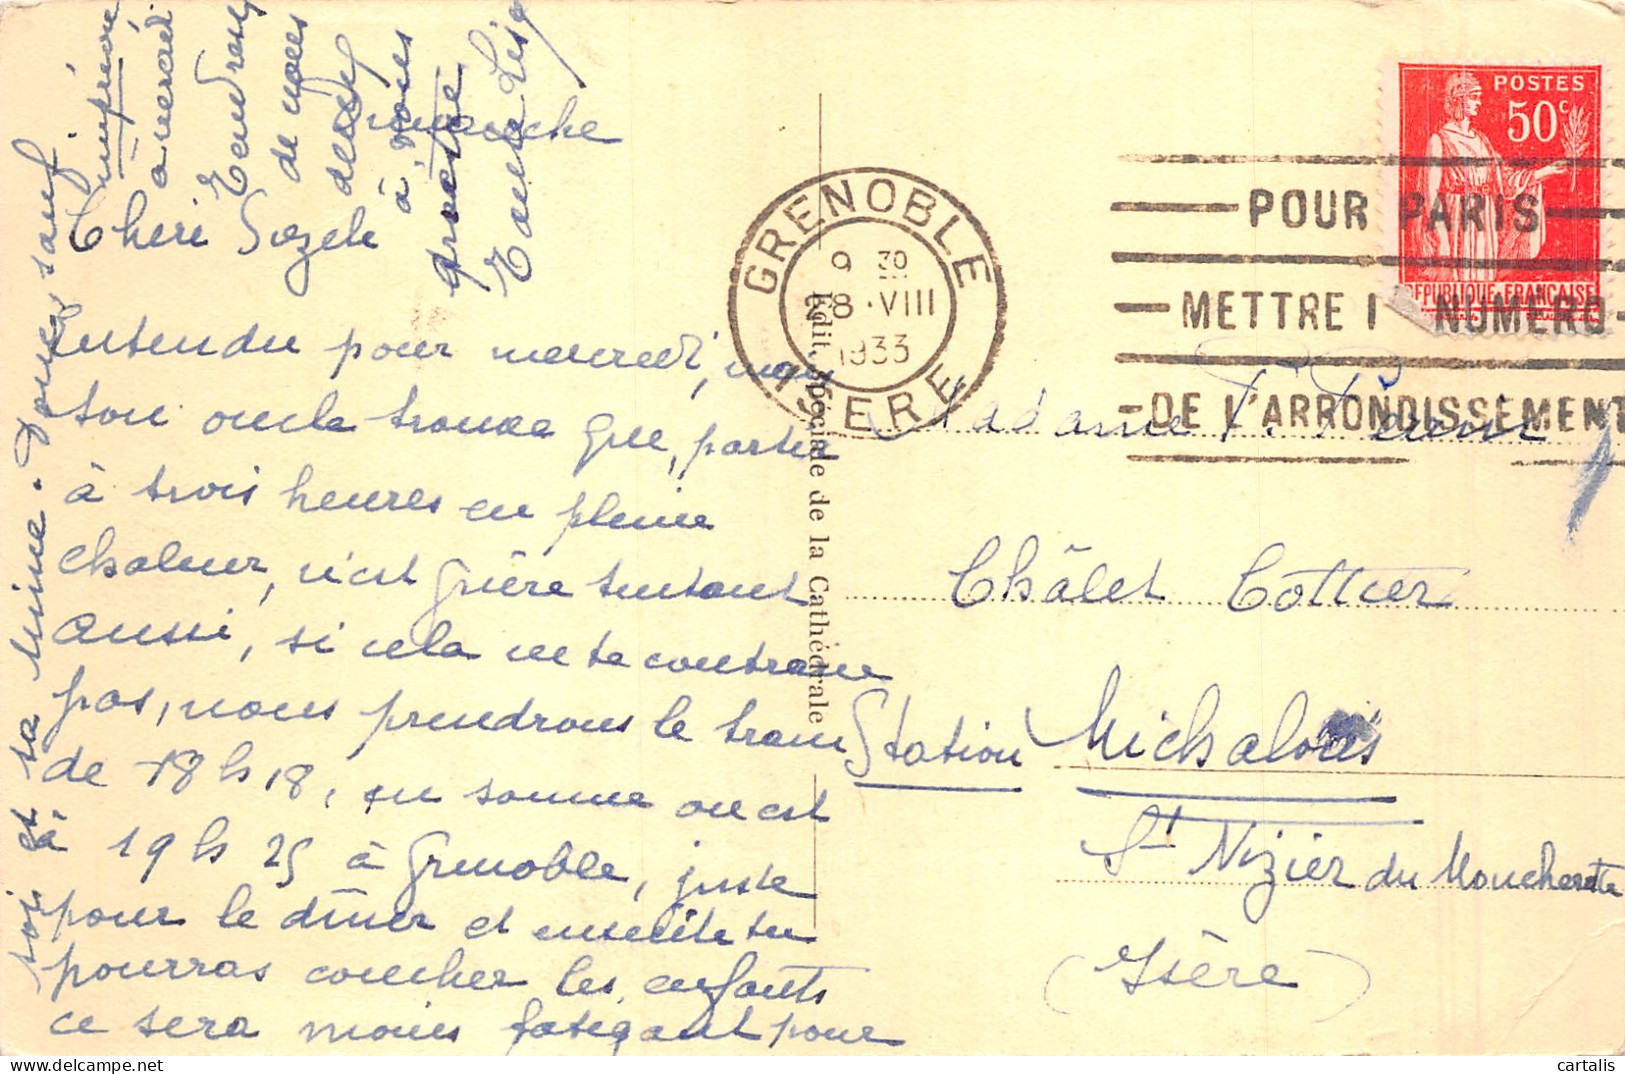 Dimanche
Chère Suzele
Entendu pour mercredi, mais
ton oncle trouve que, partir
à trois heures en pleine
chaleur, n'est guère tentant
aussi, si cela ne te contrarie
pas, nous prendrons le tram
de 18 h 18, en somme on est
à 19 h 25 à Grenoble, juste
pour le dîner et ensuite tu
pourras coucher les enfants
ce sera moins fatigant pour
toi et sa mine. Donc, sauf
imprévu
à mercredi
Tendresses
de nous
deux
à vous
quatre
Tante Lis
Edit. Spéciale de la Cathédrale
GRENOBLE
9 30
8 · VIII
1933
ISERE
POUR PARIS
METTRE I NUMERO
DE L'ARRONDISSEMENT
POSTES
50c
REPUBLIQUE FRANÇAISE
Madame P.
Châlet Cottier
Station Michalons
St Nizier du Moucherotte
(Isère)
cartalis